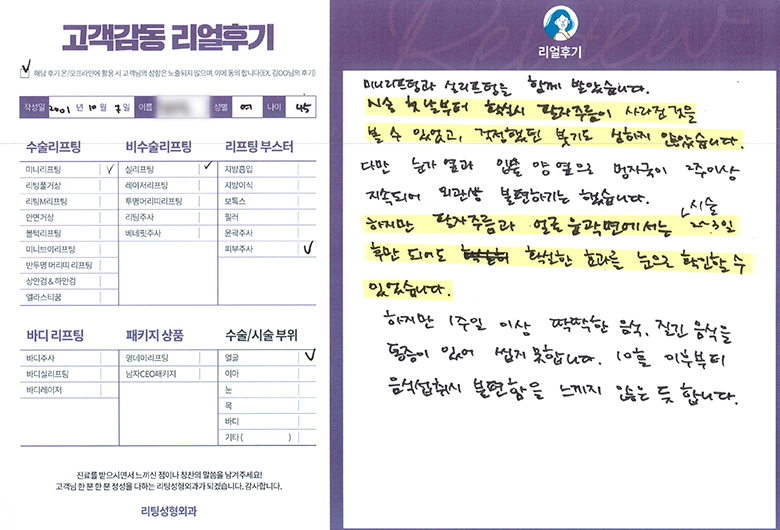 고객감동 리얼후기
✓ 해당 후기 온/오프라인에 활용 시 고객님의 성함은 노출되지 않으며, 이에 동의 합니다(EX. 김OO님의 후기)
작성일 2001 년 10 월 7 일 이름 성별 여 나이 45
수술리프팅
미니리프팅 ✓
리팅풀거상
리팅M리프팅
안면거상
볼턱리프팅
미니브이리프팅
반투명 머리띠 리프팅
상안검 & 하안검
엘라스티꿈
비수술리프팅
실리프팅 ✓
레이저리프팅
투명머리띠리프팅
리팅주사
베네핏주사
리프팅 부스터
지방흡입
지방이식
보톡스
필러
윤곽주사
피부주사 ✓
바디 리프팅
바디주사
바디실리프팅
바디레이저
패키지 상품
명데이리프팅
남자CEO패키지
수술/시술 부위
얼굴 ✓
이마
눈
목
바디
기타 ( )
진료를 받으시면서 느끼신 점이나 칭찬의 말씀을 남겨주세요!
고객님 한 분 한 분 정성을 다하는 리팅성형외과가 되겠습니다. 감사합니다.
리팅성형외과
Review
리얼후기
미니리프팅과 실리프팅을 함께 받았습니다.
시술 첫날부터 확실히 팔자주름이 사라진것을
볼 수 있었고, 걱정했던 붓기도 심하지 않았습니다.
다만 눈가 옆과 입술 양 옆으로 멍자국이 2주이상
지속되어 외관상 불편하기는 했습니다.
하지만 팔자주름과 얼굴윤곽면에서는 시술 2~3일
후만 되어도 확실한 효과를 눈으로 확인할 수
있었습니다.
하지만 1주일 이상 딱딱한 음식, 질긴 음식을
통증이 있어 씹지 못합니다. 10일 이후부터
음식섭취시 불편함을 느끼지 않는 듯 합니다.